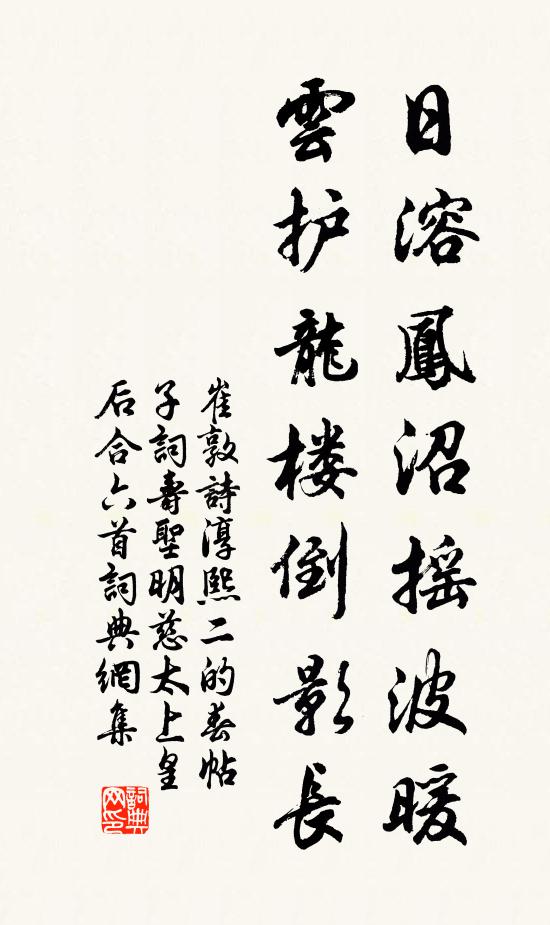 日溶鳳沼摇波暖
雲护龍楼倒影長
崔敦詩淳熙二的春帖
子詞壽聖明慈太上皇
后合六首詞典網集
詞典网印